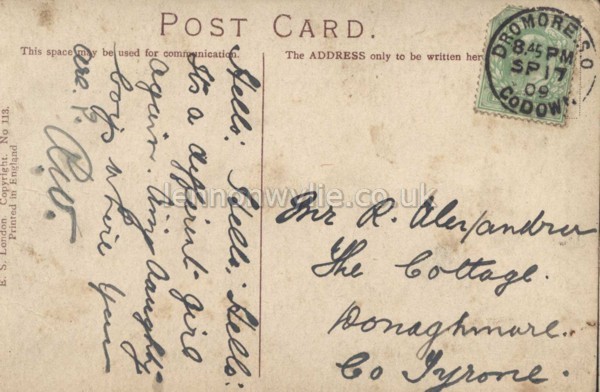 POST CARD.
This space may be used for communication.
The ADDRESS only to be written her
DROMORE S.O
8.45 PM
SP 17
09
CO DOWN.
Hello: Hello: Hello:
Its a differint girl
again. Any naughty
boys where you
are?
R.W.
Mr R. Alexander
The Cottage.
Donaghmore.
Co Tyrone.
E. S. London. Copyright. No 113.
Printed in England
lennonwylie.co.uk